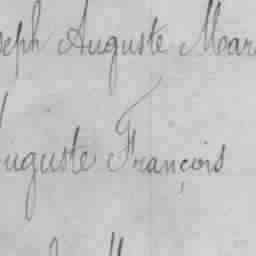 seph Auguste Mar
uguste François